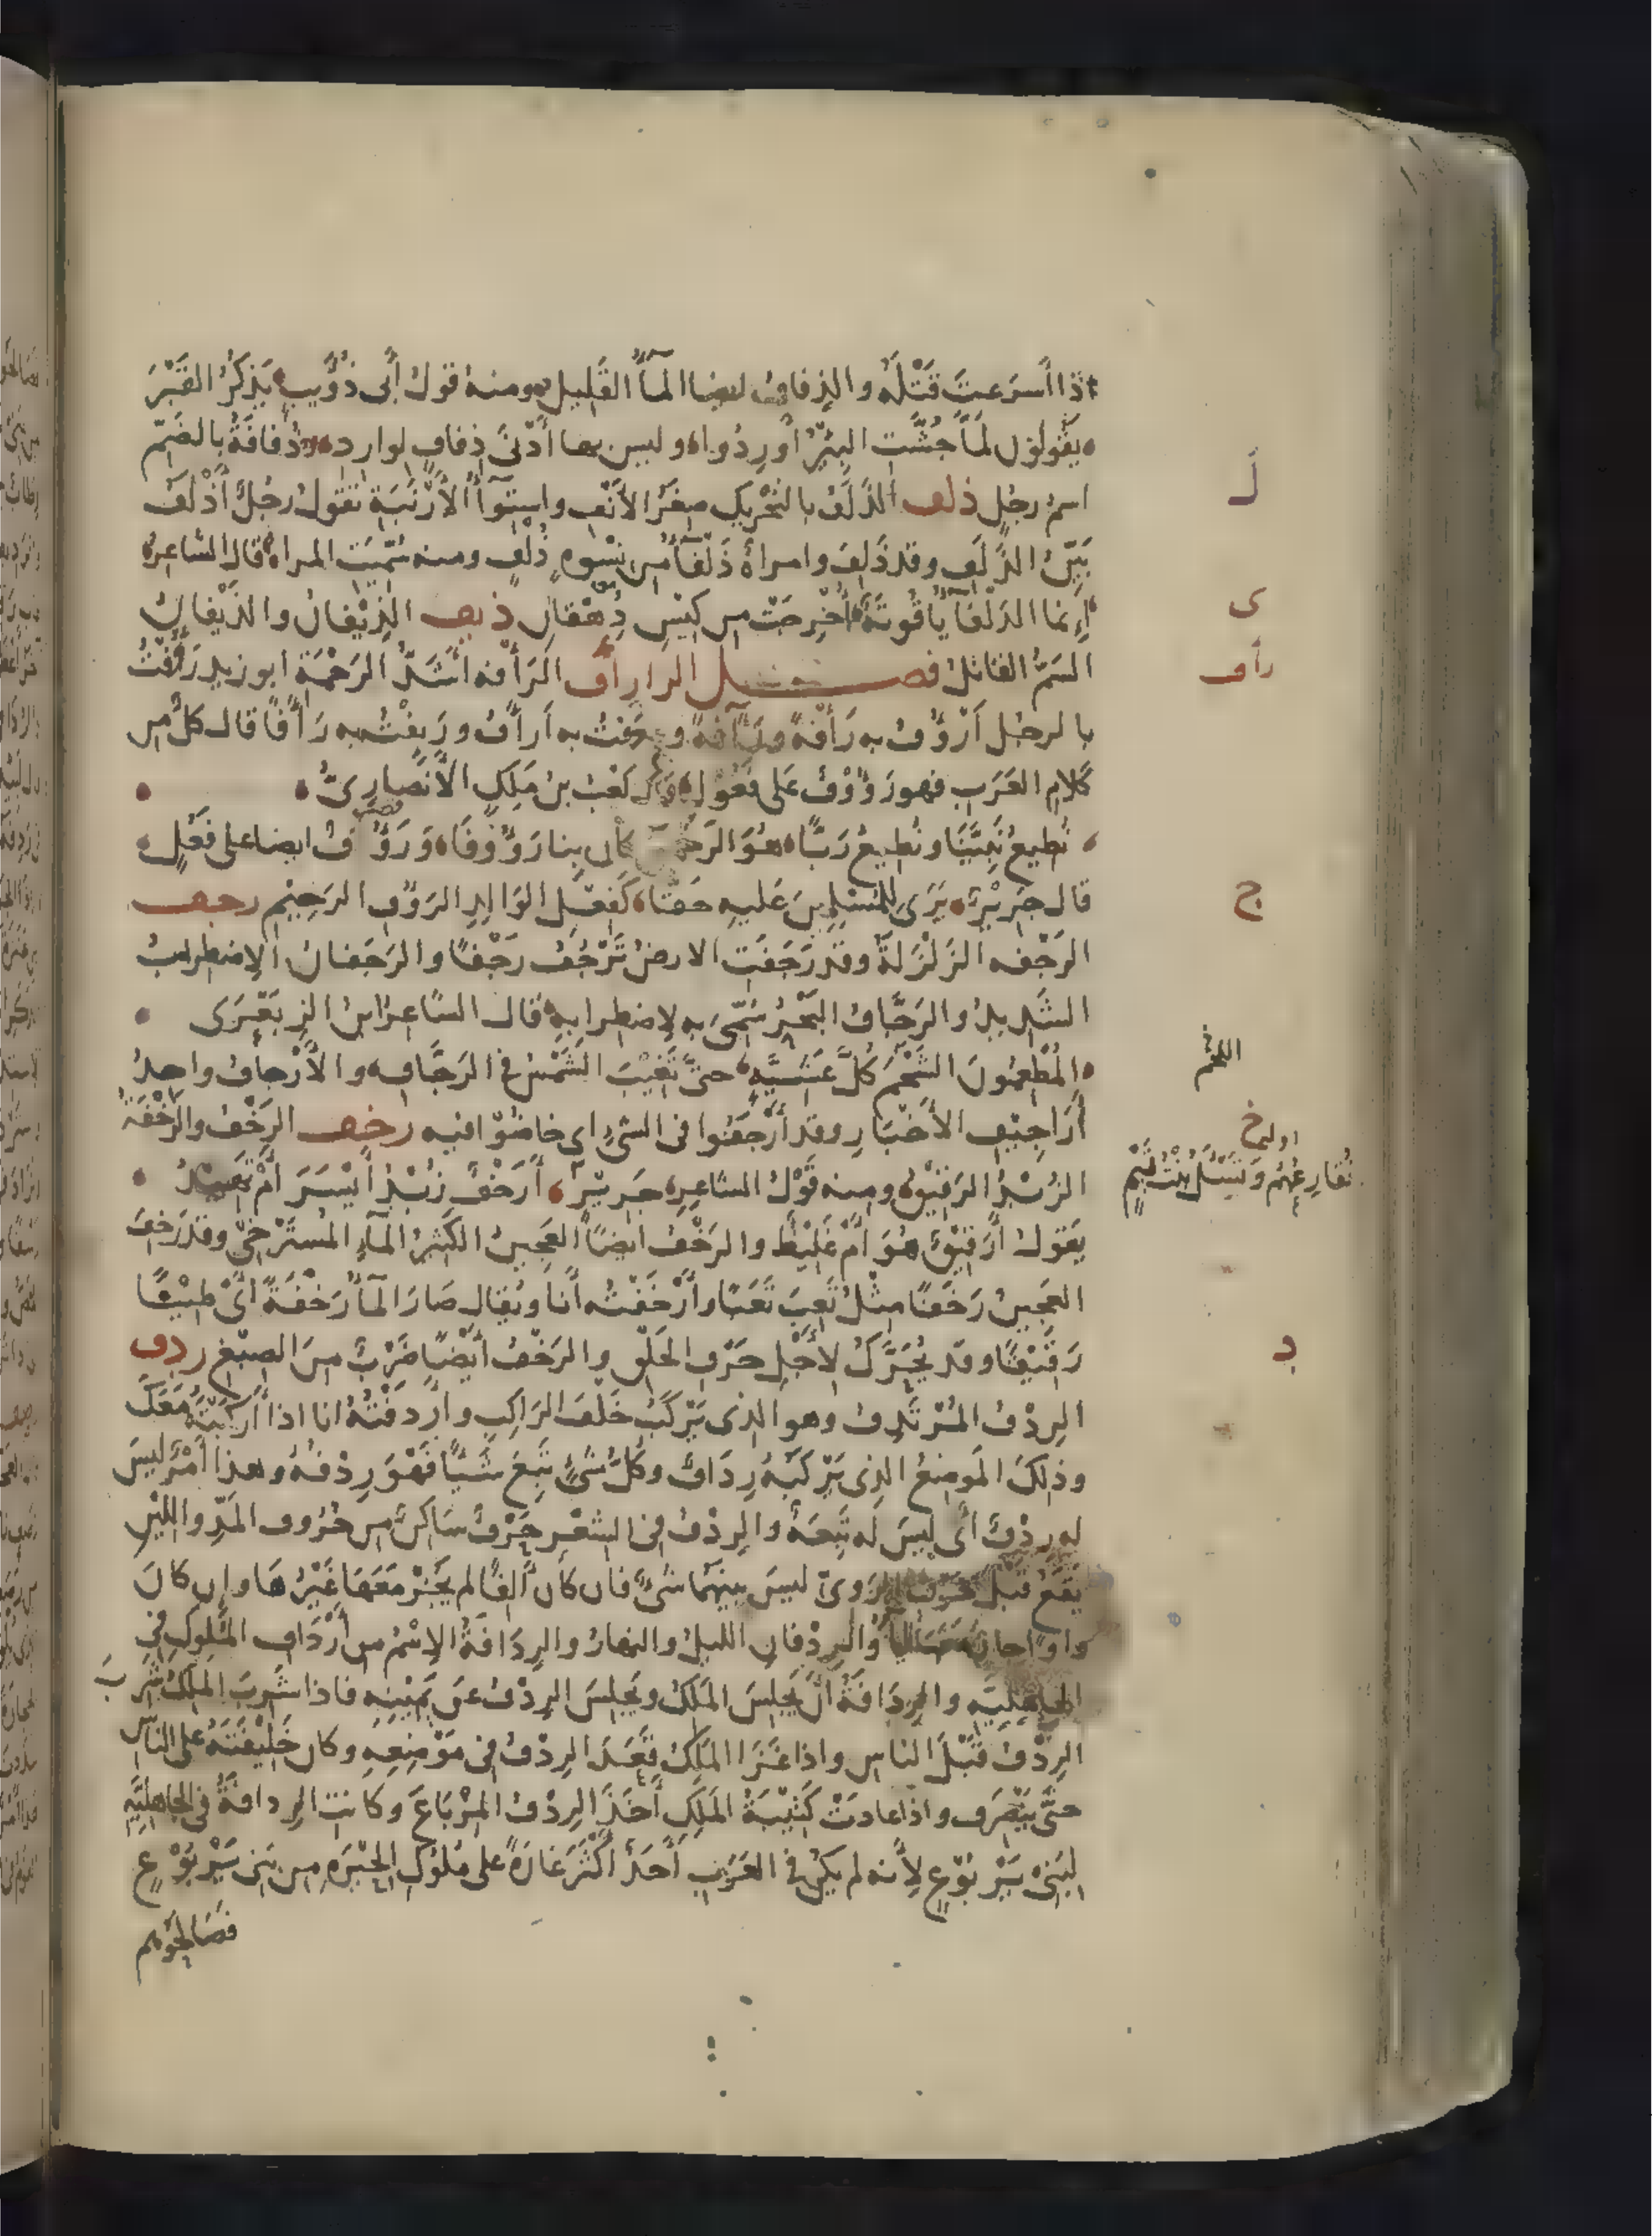 اذا أسرعت قَتْلَه والذِفافُ ايضا المآءُ القَلِيل ومنهُ قولُ أبى ذُؤَيبٍ يَذكُرُ القَبْرَ
يَقُولُونَ لَمَّا جُشَّتِ البِئْرُ أَورِدُوا وليس بها أَدْنَى ذِفافٍ لوارد وذُفافَةُ بالضَمّ
اسمُ رجُلٍ ذلف الذَلَفُ بالتَحْرِيكِ صِغَرُ الأَنْفِ واستِوَآءُ الأَرْنَبَةِ تقولُ رجُلٌ أَذْلَفُ
بَيِّنُ الذَلَفِ وقد ذَلِفَ وامرأةٌ ذَلْفَآءُ من نِسْوةٍ ذُلْفٍ ومنه سُمِّيَت المراة قال الشاعر
إنما الذَلْفَآءُ يَاقُوتَةٌ أُخْرِجَتْ من كِيْسِ دِهْقانِ ذيف الذِيْفَانُ والذَيْفانُ
السَمُّ القاتل فصل الرا رأف الرَأفه أَشَدُّ الرَحْمَةِ ابو زيد رَؤُفْتُ
بالرجُل أَرْؤُفُ به رَأفةً ورَآفةً ورَأَفْتُ به أَرأَفُ ورَئِفْتُ به رَأَفًا قال كلٌّ من
كَلامِ العَرَبِ فهو رَؤُوْفٌ عَلى فَعُوْلٍ قال كَعْبُ بنُ مَلِكٍ الأَنْصارِىُّ
نُطِيعُ نَبِيَّنَا ونُطِيعُ رَبًّا هُوَ الرَحْمنُ كان بِنا رَؤُوفَا وَرَؤُفٌ ايضا على فَعُلٍ
قال جَرِيْرٌ يَرَى لِلمُسْلِمِينَ عَلَيهِ حَقًّا كَفِعْلِ الوَالِدِ الرَؤُفِ الرَحِيْمِ رجف
الرَجْفه الزَلْزَلَةُ وقد رَجَفَتِ الارضُ تَرْجُفُ رَجْفًا والرَجَفانُ الاِضطِرابُ
الشَدِيدُ والرَجَّافُ البَحْرُ سُمِّىَ به لاِضطِرابِهِ قال الشاعِرُ ابنُ الزِبَعْرَى
المُطْعِمُونَ الشَحْمَ كُلَّ عَشِيَّةٍ حتَّى تَغِيْبَ الشَمْسُ فى الرَجَّافِ والأَرْجافُ واحدُ
أَرَاجِيْفِ الأَخْبَارِ وقد أَرْجَفُوا فى الشىءِ اى خاضُوْا فيه رخف الرَخْفُ والرَخْفَةُ
الزُبْدُ الرَقِيْقُ ومنه قَوْلُ الشاعِر جَرِيْرٍ أَرَخْفٌ زُبْدُ أَيْسَرَ أَمْ نَهِيْدُ
يَقولُ أَرَقِيْقٌ هُوَ أَمْ غَلِيْظٌ والرَخْفُ ايضًا العَجِينُ الكَثِيرُ المآءِ المُسْتَرْخِىْ وقد رَخِفَ
العَجِينُ رَخَفًا مِثْلُ تَعِبَ تَعَبًا وأَرْخَفْتُه أَنا ويُقال صَارَ المآءُ رَخْفَةً أَىْ طِيْنًا
رَقِيْقًا وقد يُحَرَّكُ لأَجْلِ حَرْفِ الحَلْقِ والرَخْفُ أَيْضًا ضَرْبٌ مِنَ الصِبْغِ ردف
الرِدْفُ المُرْتَدِفُ وهو الذى يَرْكَبُ خَلْفَ الرَاكِبِ وأَردَفْتُهُ انا اذا أَركَبْتَهُ مَعَكَ
وذلكَ المَوضِعُ الذِى يَرْكَبُهُ رِدَافٌ وكُلُّ شَىْءٍ تَبِعَ شَيْئًا فَهْوَ رِدْفُهُ وهذا أَمْرٌ لَيسَ
له رِدْفٌ أَى لَيسَ لَه تَبِعَةٌ والرِدْفُ فى الشعْرِ حَرْفٌ سَاكِنٌ من حُرُوفِ المَدِّ واللِيْنِ
يَقَعُ قَبْلَ حَرْفِ الرَوِىّ ليسَ بينَهُما شىْءٌ فان كانَ أَلِفًا لم يَجُزْ مَعَهَا غَيْرُهَا وان كانَ
واوًا جازَ مَعَهَا اليآءُ والرِدْفانِ الليلُ والنهارُ والرِدَافَةُ الاِسْمُ من أَرْدَافِ المُلوكِ فى
الجاهِلِيّه والرِدَافَةُ أَنْ يَجْلِسَ المَلِكُ ويَجْلِسَ الرِدْفُ عن يَمِيْنِهِ فاذا شَرِبَ المَلِكُ شَرِبَ
الرِدْفُ قَبْلَ الناسِ واذا غَزَا المَلِكُ قَعَدَ الرِدْفُ فى مَوْضِعِهِ وكان خَلِيْفَتَهُ على الناسِ
حتَّى يَنْصَرِف واذا عادَتْ كَتِيْبَةُ المَلِكِ أَخَذَ الرِدْفُ المِرْبَاعَ وكانت الرِدافَةُ فى الجاهليَّهِ
لِبَنِىْ يَرْبُوْعٍ لِأَنه لم يكُنْ فى العَرَبِ أَحَدٌ أَكْثَرَ غارَةً على مُلوْكِ الحِيْرَهِ من بَنى يَرْبُوْعٍ
فصَالَحُوْهُم
ل
ى
رأف
ج
اللحم
خ
اوله
نُقارِعُهُم وتَسْئَلُ بِنْتُ تَيْمٍ
د